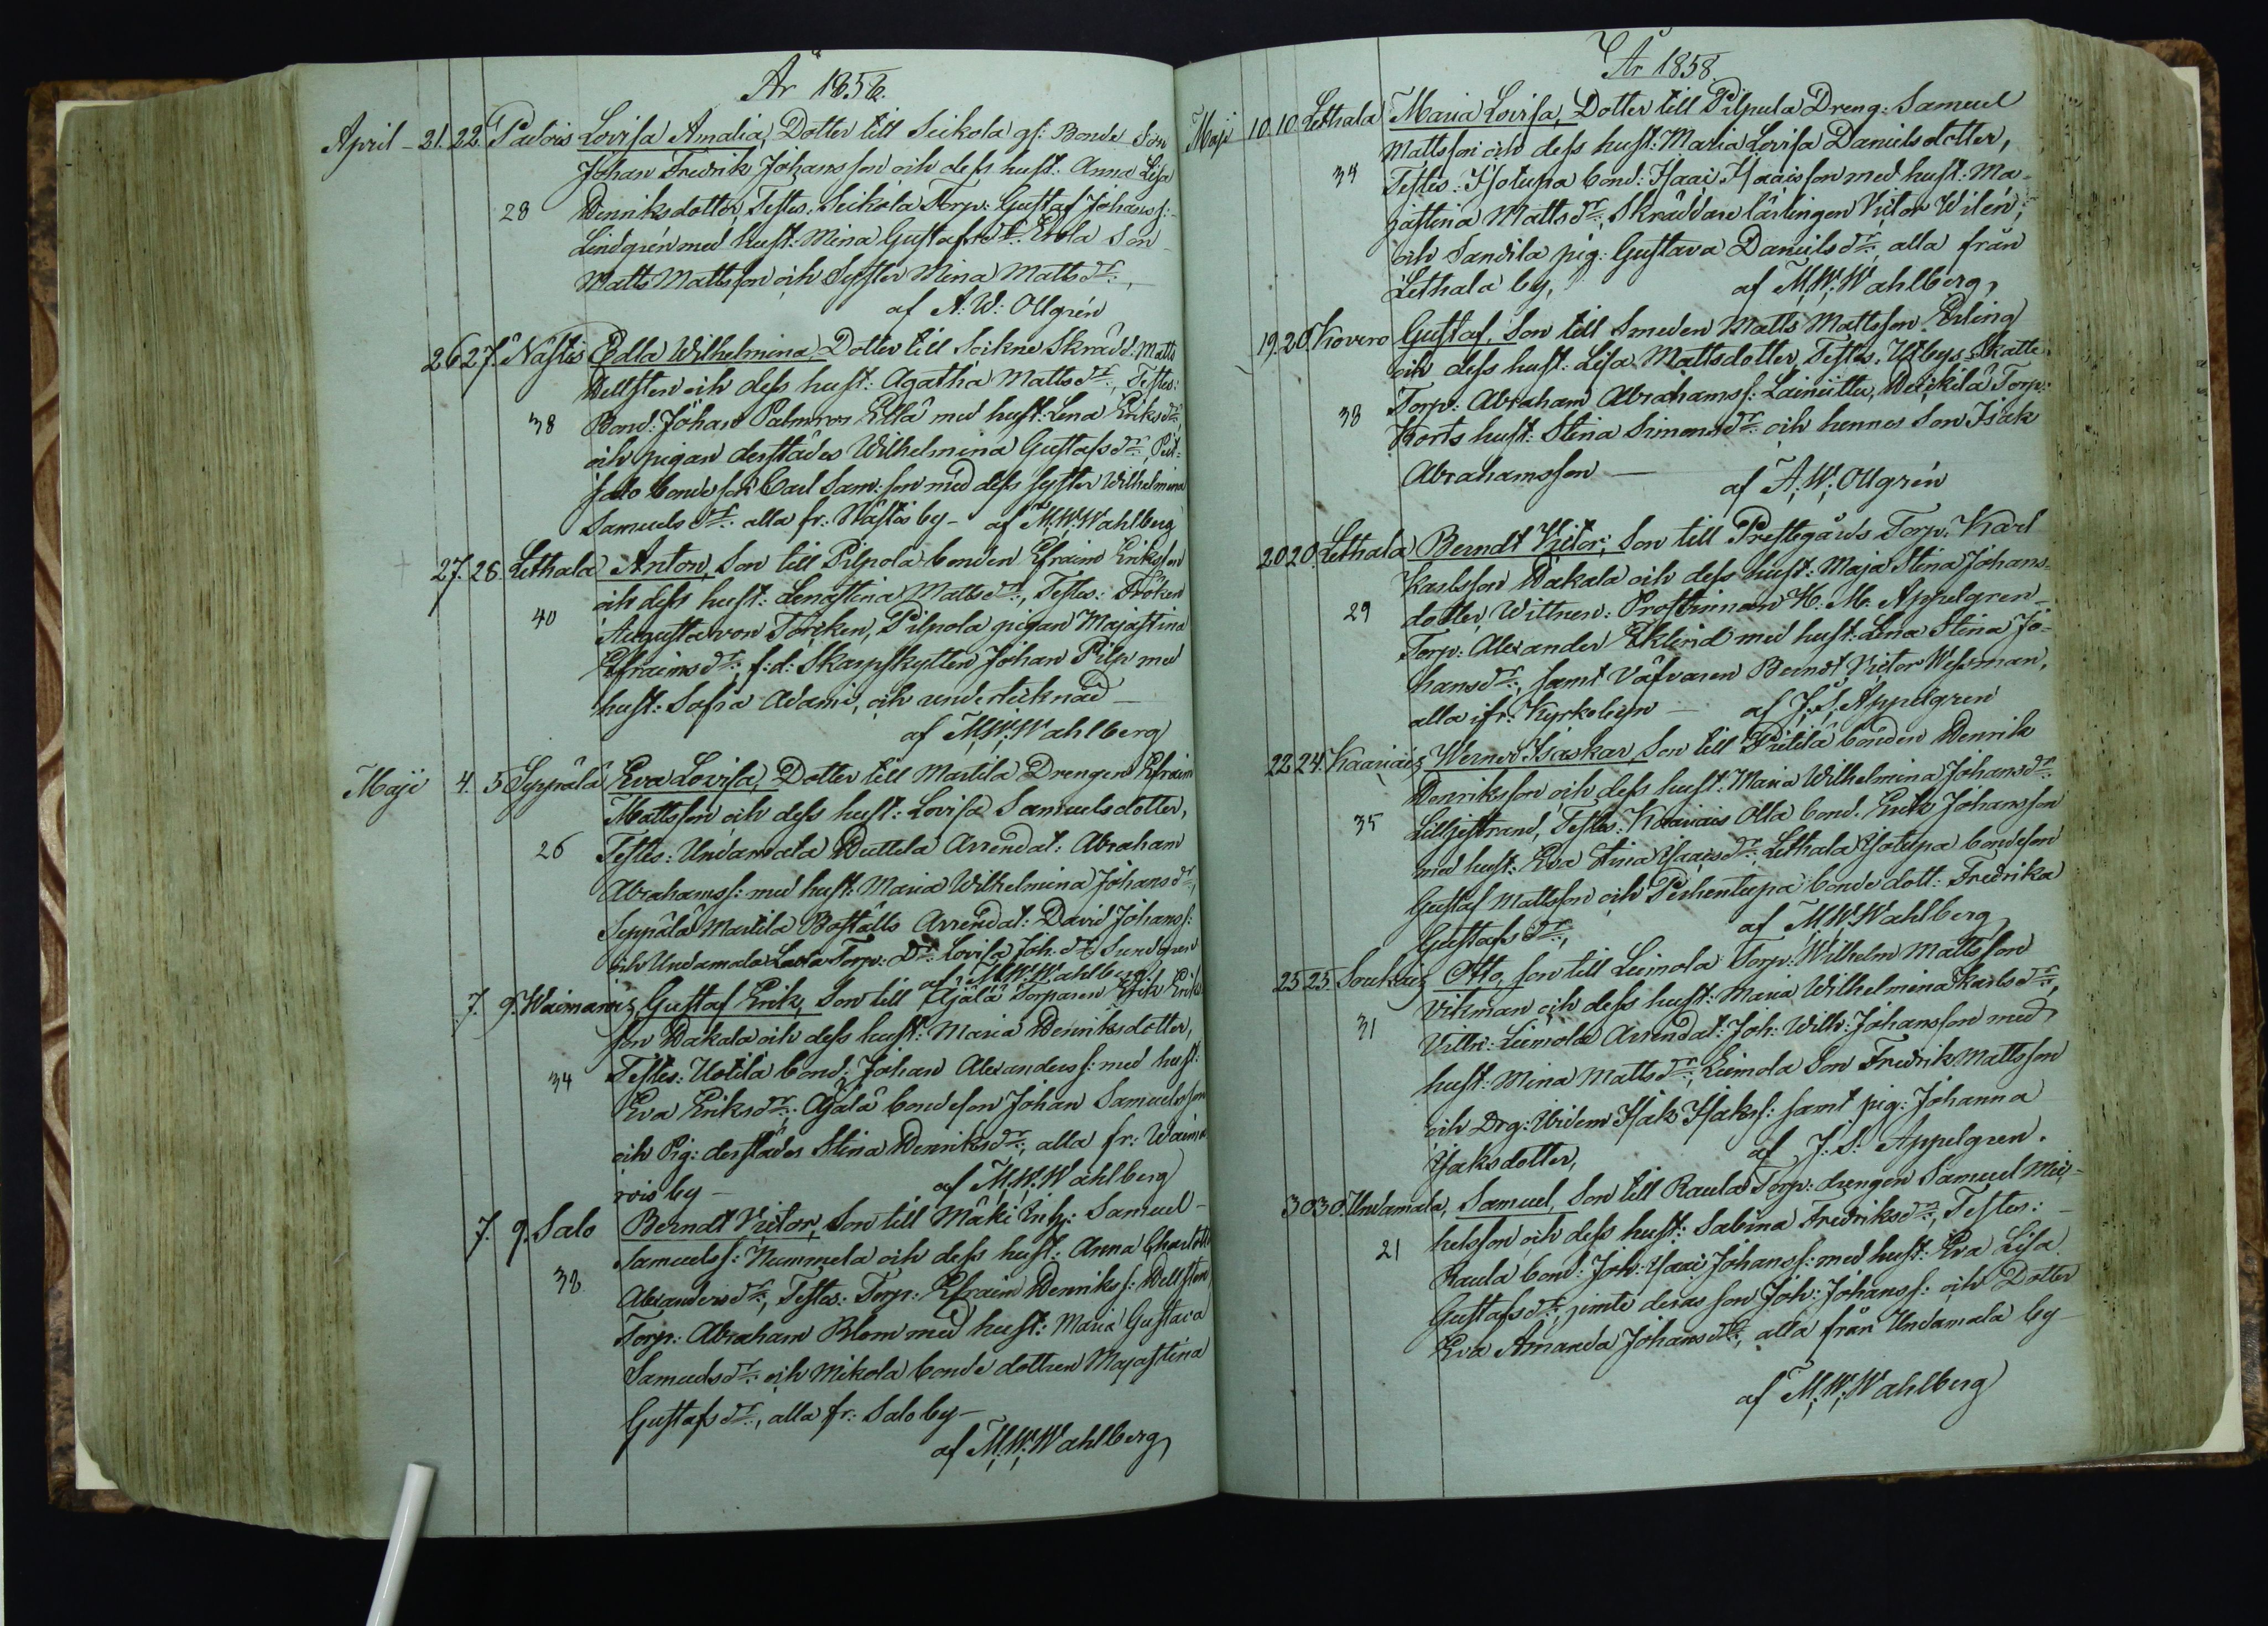 År 1858.
April - 21. 22. Padois Lovisa Amalia, Dotter till Seikola gs: Bonde Son
Johan Fredrik Johansson och dess hust: Anna Lisa
28 Henriksdotter, Testes: Seikola Torp: Gustaf Johanss:
Lindgrén med hust: Mina Gustafsdr: Erola Son
Matts Mattsson och Syster Mina Mattsdr:,
af A: W: Ollgrén
26 27. Nästis Edla Wilhelmina, Dotter till Sockne Skrädd: Matts
Hellsten och dess hust: Agatha Mattsdr:, Testes:
38 Bond: Johan Palmros Ellä med hust: Lena Eriksdr:,
och pigan derstädes Wilhelmina Gustafsdr:,
salo bondeson Carl Sam:son med dess syster Wilhelmina
Samuelsdr: alla fr: Nästis by - af M.W. Wahlberg
27. 28 Lethala Anton, Son till Pilpola bonden Efraim Eriksson
och dess hust: Lenastina Mattsdr:, Testes: Fröken
40 Augusta von Törcken, Pilpola pigan Majastina
Efraimsdr:, f:d: Skarpskytten Johan Pilp med
hust: Sofia Adami, och undertecknad -
af M.W. Wahlberg
Maji 4. 5 Seppälä Eva Lovisa, Dotter till Martila Drengen Efraim
Mattsson och dess hust: Lovisa Samuelsdotter,
26 Testes: Undamala Huttela Arrendat: Abraham
Abrahamss: med hust: Maria Wilhelmina Johansdr:,
Seppälä Martila Boställs Arrendat: David Johanss:
och Undamala Torp: Dr: Lovisa Joh: dr: Sundgren
af M.W. Wahlberg
7. 9. Waimarois, Gustaf Erik, Son till Äjälä Torparen Erik Eriks
son Hakala och dess hust: Maria Henriksdotter,
34 Testes: Uotila bond: Johan Alexanderss: med hust:
Eva Eriksdr:, Äjälä bondeson Johan Samuelsson
och Pig: derstädes Stina Henriksdr:, alla fr: Waima
rois by - af M.W. Wahlberg
7. 9. Salo Berndt Victor, Son till Mäki Inh: Samuel
Samuelss: Nummela och dess hust: Anna Charlotta
38 Alexandersdr:, Testes: Torp: Efraim Henrikss: Hellsten,
Torp: Abraham Blom med hust: Maria Gustava
Samuelsdr: och Mikola bonde dottren Majastina
Gustafsdr:, alla fr: Salo by -
af M.W. Wahlberg
År 1858.
Maji 10. 10. Lethala Maria Lovisa, Dotter till Pilpula Dreng: Samuel
Mattsson och dess hust: Maria Lovisa Danielsdotter,
34 Testes: Isotupa bond: Isaac Isaacsson med hust: Ma-
jastina Mattsdr:, Skräddare lärlingen Victor Wilén,
och Sandila pig: Gustava Danielsdr:, alla från
Lethala by, af M.W. Wahlberg,
19. 20. Kovero Gustaf, Son till Smeden Matts Mattsson Erling
och dess hust: Lisa Mattsdotter, Testes: Utbys Skatte
38 Torp: Abraham Abrahamss: Lainitta, Heikilä Torp:
Horts hust: Stina Simonsdr: och hennes Son Isak
Abrahamsson - af A.W. Ollgrén
20 20. Lethala Berndt Victor, Son till Prestegårds Torp: Karl
Karlsson Hakala och dess hust: Maja Stina Johans-
29 dotter, Wittnen: Prostinnan H. M. Appelgren -
Torp: Alexander Eklind med hust: Lena Stina Jo-
hansdr:, samt Väfvaren Berndt Victor Wessman,
alla ifr: Kyrkobyn - af J. S. Appelgren
22 24. Kaaniais, Werner Isaskar, Son till Prittilä bonden Henrik
Henriksson och dess hust: Maria Wilhelmina Johansdr:
35 Liljestrand, Testes: Kaaniais Olla bond: Erik Johansson
med hust: Eva Stina Isaacsdr:, Lethala Isotupa bondeson
Gustaf Mattsson och Perhentupa bonde dott: Fredrika
Gustafsdr:, af M.W. Wahlberg
25 25 Soukais, Otto, son till Liemola Torp: Wilhelm Mattsson
Vikman och dess hust: Maria Wilhelmina Karlsdr:,
31 Vittn: Liemola Arrendat: Joh: Wilh: Johansson med
hust: Mina Mattsdr:, Liemola Son Fredrik Mattsson
och Drg: Widem Isak Isakss: samt pig: Johanna
Isaksdotter, af J. S. Appelgren.
30 30. Undamala, Samuel, Son till Raula Torp: drengen Samuel Mic-
helsson och dess hust: Sabina Fredriksdr:, Testes:
21 Raula bond: Joh: Isaac Johanss: med hust: Eva Lisa
Gustafsdr:, jemte deras son Joh: Johanss: och Dotter
Eva Amanda Johansdr:, alla från Undamala by -
af M.W. Wahlberg